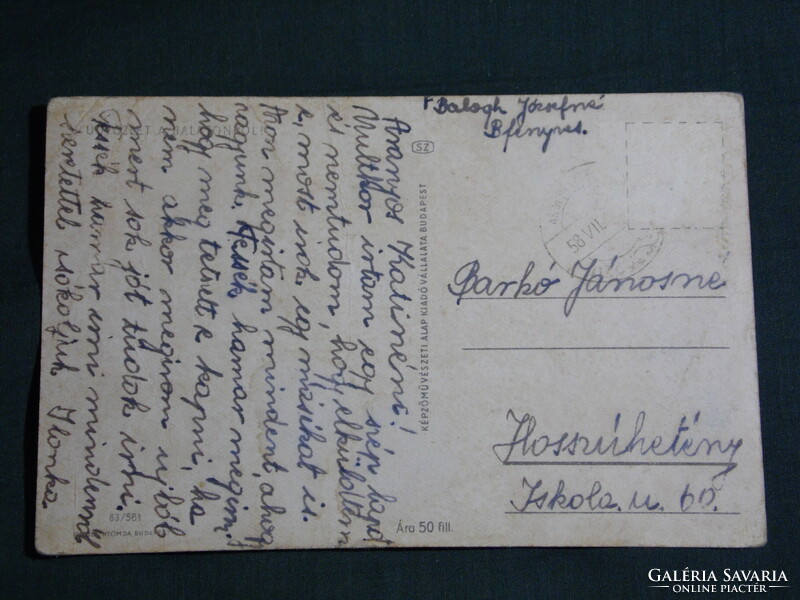 F Balogh Józsefné
Bfenyves.
58 VII.
Aranyos Katinéni!
Multkor irtam egy szép lapot
és nemtudom, hogy elküldtem
e, most irok egy másikat is.
Azon megirtam mindent, ahogy
vagyunk. Tessék hamar megirni
hogy meg tetszett e kapni, ha
nem akkor megirom ujból
mert sok jót tudok irni.
Tessék hamar irni mindennel
szeretettel csókoljuk Ilonka
SZ
KÉPZŐMŰVÉSZETI ALAP KIADÓVÁLLALATA BUDAPEST
Barkó Jánosné
Hosszúhetény
Iskola. u. 60.
63/581
Ára 50 fill.
GALÉRIA SAVARIA
ONLINE PIACTÉR